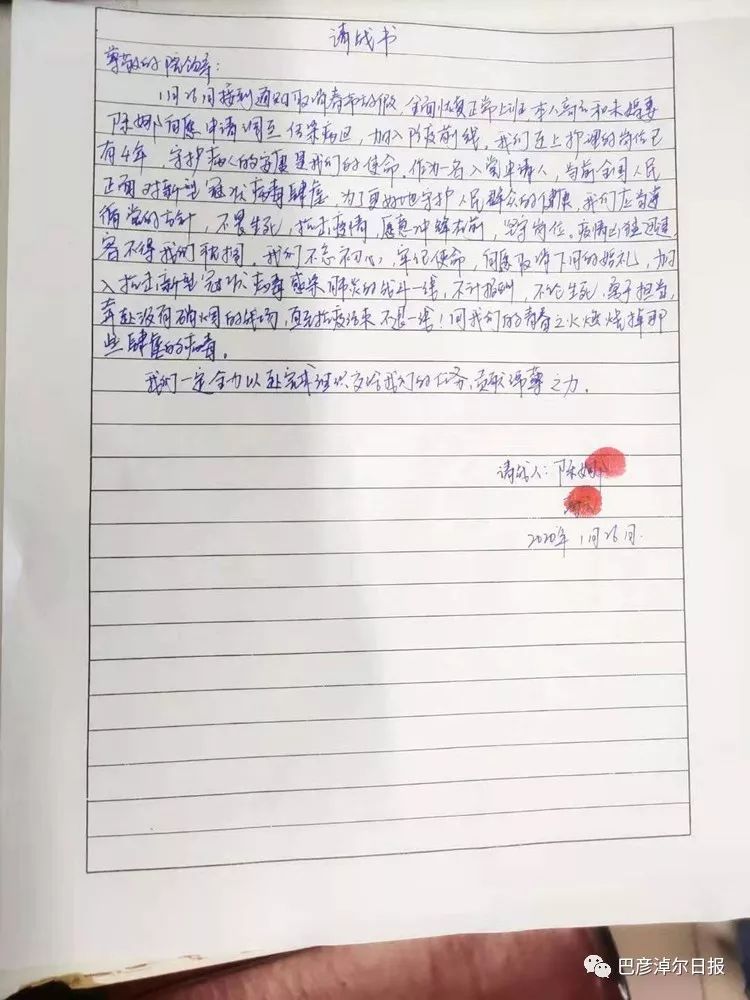 请战书
尊敬的院领导：
1月26日接到通知取消春节的假，全面恢复正常上班 本人 和未婚妻
陈娜 自愿申请调至传染病区，加入防疫前线，我们至上护理的岗位已
有4年，守护病人的安康是我们的使命。作为一名入党申请人，当前全国人民
正面对新型冠状病毒肆虐，为了更好地守护人民群众的健康，我们应当遵
循党的方针，不畏生死，抗击疫情，愿意冲锋在前，坚守岗位。疫情凶猛迅速，
容不得我们耽搁，我们不忘初心，牢记使命，自愿取消下月的婚礼，加
入抗击新型冠状病毒感染肺炎的战斗一线，不计报酬，不论生死，勇于担当，
奔赴没有硝烟的战场，直至抗疫结束不退一线！用我们的青春之火燃烧掉那
些肆虐的病毒。
我们一定全力以赴完成组织交给我们的任务，贡献绵薄之力。
请战人：陈娜
2020年1月26日
巴彦淖尔日报